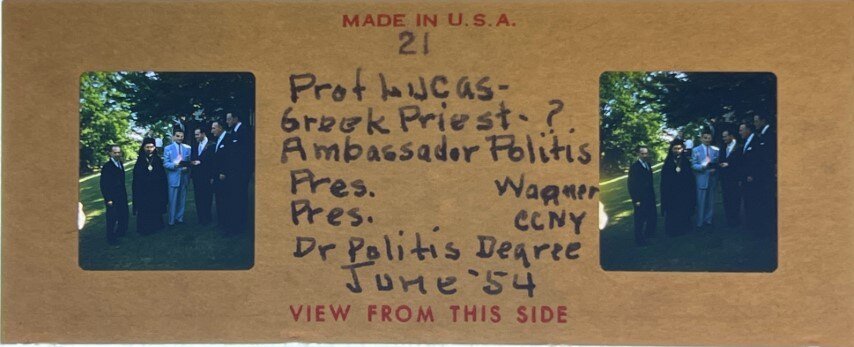 MADE IN U.S.A.
21
Prof Lucas-
Greek Priest - ?
Ambassador Politis
Pres. Wagner
Pres. CCNY
Dr Politis Degree
June '54
VIEW FROM THIS SIDE